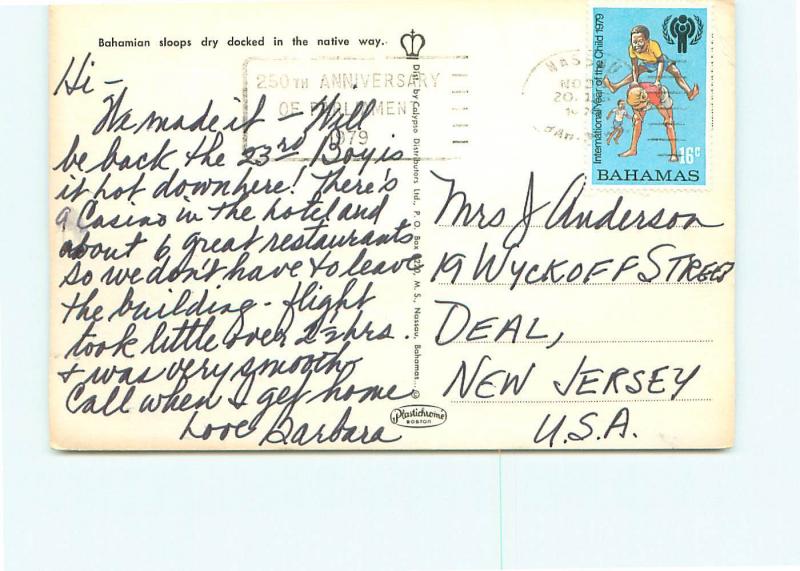 Bahamian sloops dry docked in the native way.
Hi -
We made it - Will
be back the 23rd Boy is
it hot down here! There's
a Casino in the hotel and
about 6 great restaurants
so we don't have to leave
the building - flight
took little over 2½ hrs.
& was very smooth
Call when I get home
Love Barbara
250TH ANNIVERSARY
OF PARLIAMENT
1979
NASSAU
Dist. by Calypso Distributors Ltd., P. O. Box M. S., Nassau, Bahamas
Plastichrome
BOSTON
International Year of the Child 1979
16c
BAHAMAS
Mrs J Anderson
19 WYCKOFF STREET
DEAL,
NEW JERSEY
U.S.A.